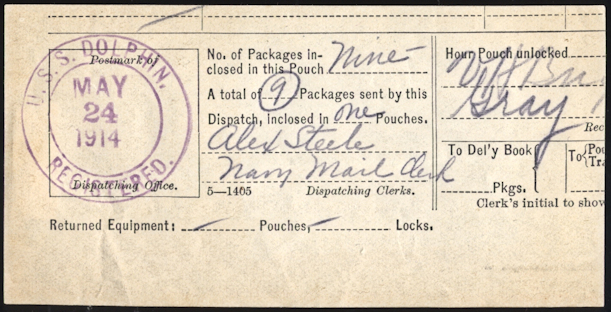 U.S.S. DOLPHIN.
MAY
24
1914
REGISTERED.
Postmark of
Dispatching Office.
No. of Packages in-
closed in this Pouch Nine
A total of 9 Packages sent by this
Dispatch, inclosed in one Pouches.
Alex Steele
Navy Mail Clerk
5—1405 Dispatching Clerks.
Hour Pouch unlocked
Gray
Rec
To Del'y Book
Pkgs.
To {Pou
Tra
Clerk's initial to show
Returned Equipment: — Pouches, — Locks.